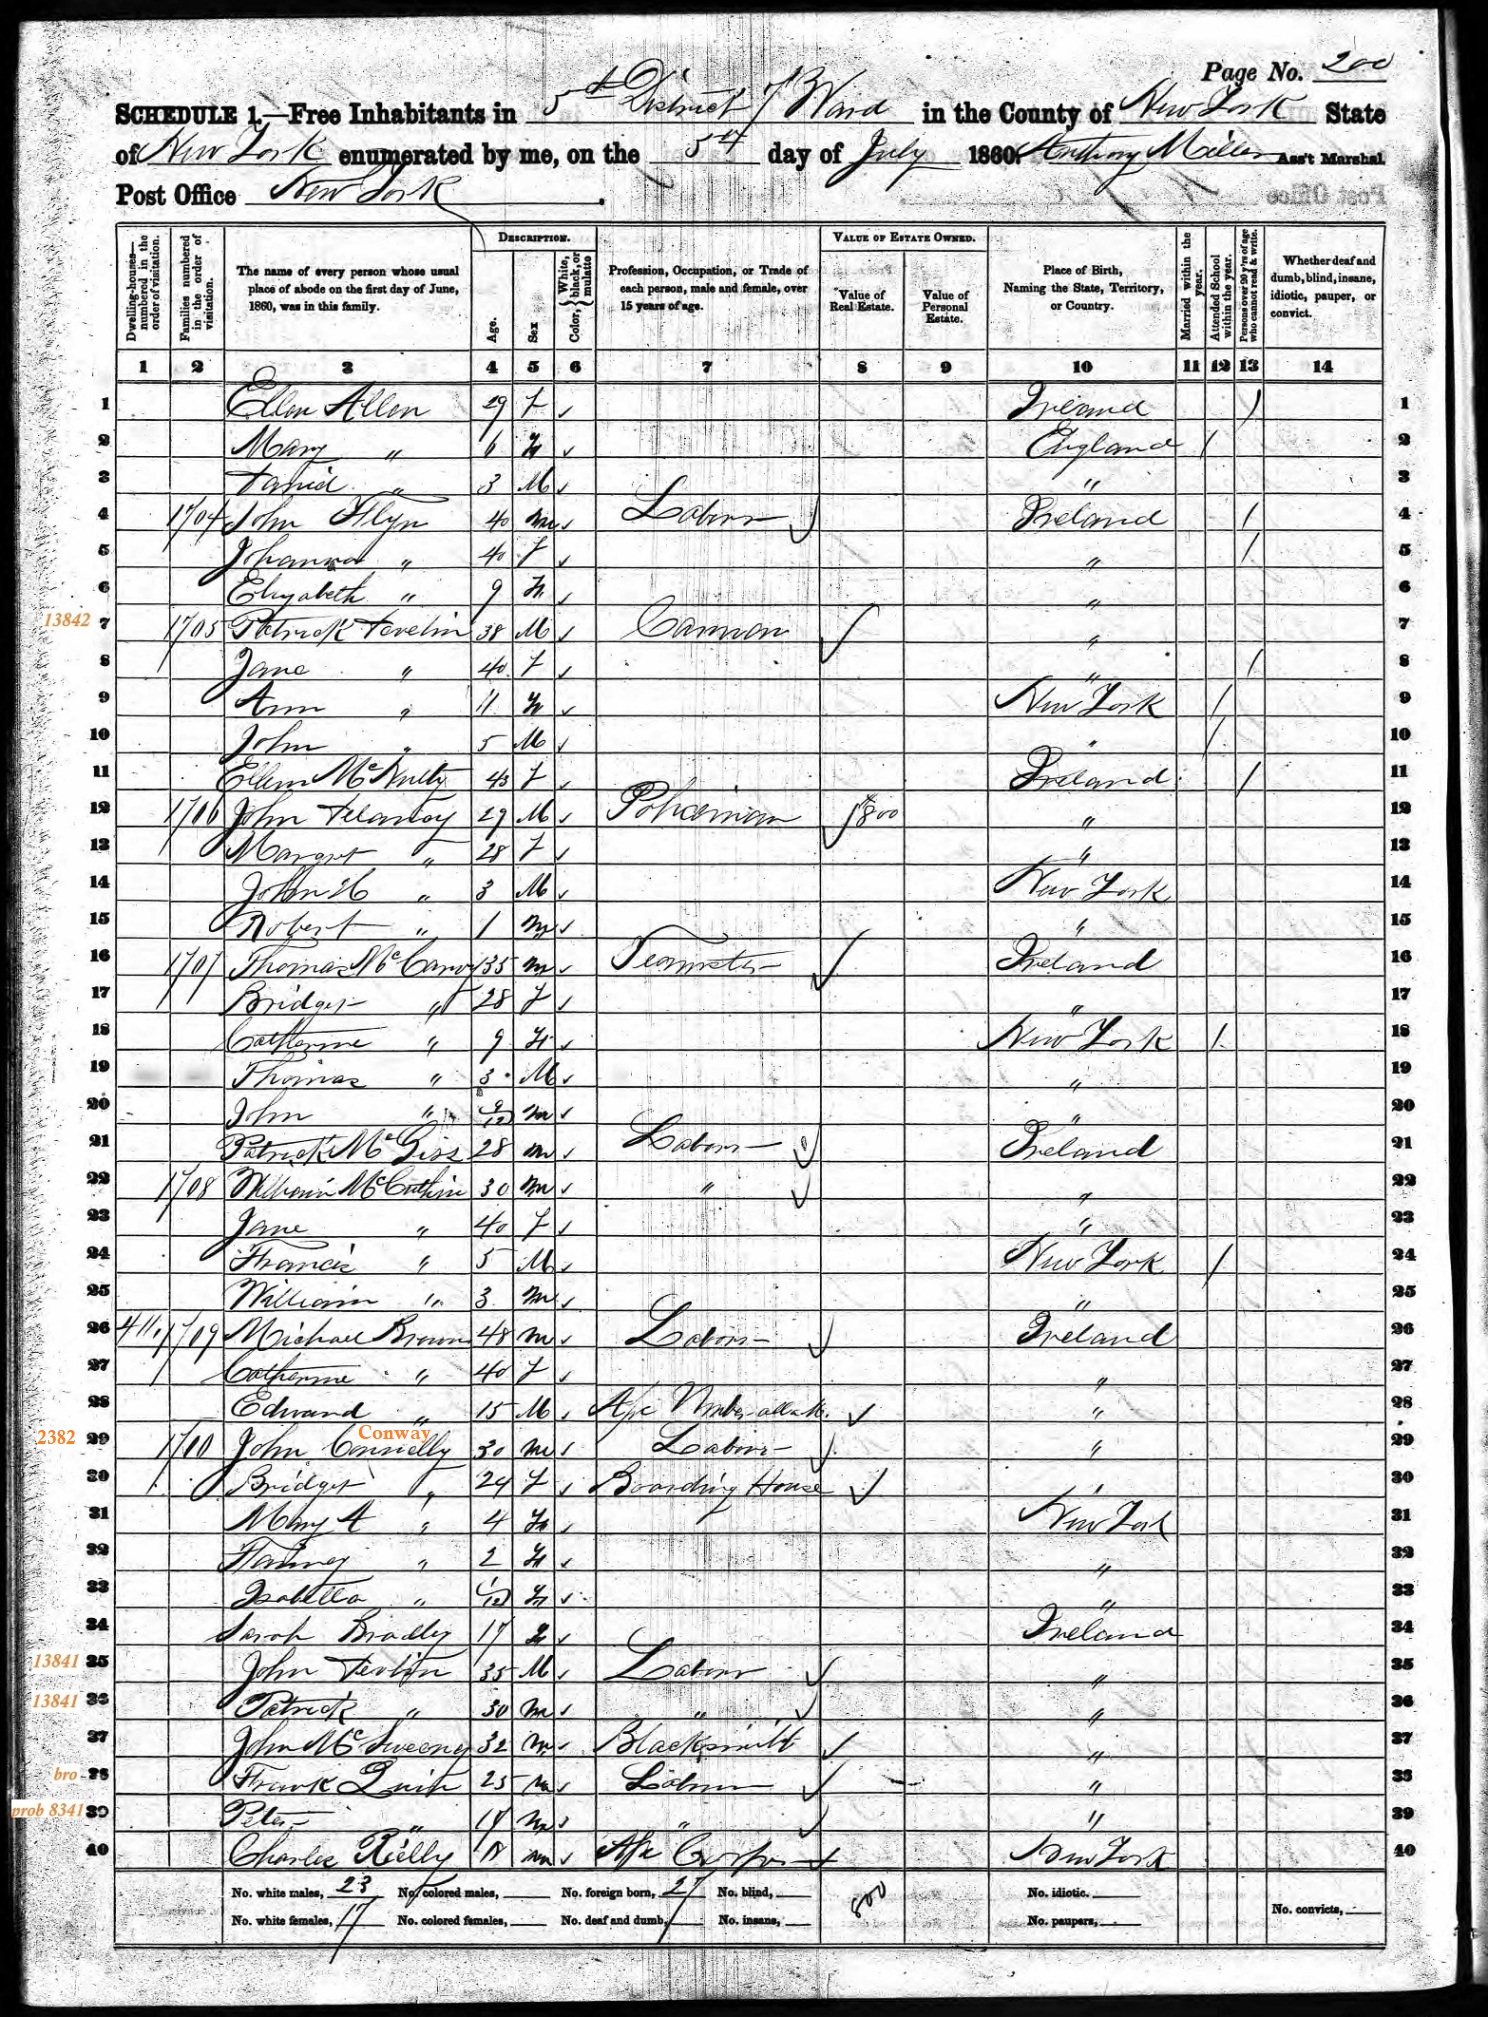 Page No. 200
SCHEDULE 1.—Free Inhabitants in 5th District 7 Ward in the County of New York State
of New York enumerated by me, on the 5th day of July 1860. Anthony Miller Ass't Marshal.
Post Office New York
Dwelling-houses—numbered in the order of visitation.
Families numbered in the order of visitation.
The name of every person whose usual place of abode on the first day of June, 1860, was in this family.
DESCRIPTION.
Age.
Sex
Color, { White, black, or mulatto
Profession, Occupation, or Trade of each person, male and female, over 15 years of age.
VALUE OF ESTATE OWNED.
Value of Real Estate.
Value of Personal Estate.
Place of Birth, Naming the State, Territory, or Country.
Married within the year.
Attended School within the year.
Persons over 20 y'rs of age who cannot read & write.
Whether deaf and dumb, blind, insane, idiotic, pauper, or convict.
1 2 3 4 5 6 7 8 9 10 11 12 13 14
1 Ellen Allen 29 F Ireland / 1
2 Mary " 6 F England / 2
3 " 3 M " 3
4 1704 John Flyn 40 M Labor Ireland / 4
5 Johanna " 40 F " / 5
6 Elizabeth " 9 F " 6
13842 7 1705 Patrick Devlin 38 M " 7
8 Jane " 40 F " / 8
9 Ann " 11 F New York / 9
10 John " 5 M " / 10
11 Ellen McNulty 43 F Ireland / 11
12 1706 John Delaney 29 M Policeman 800 " 12
13 Margret " 28 F " 13
14 John H " 3 M New York 14
15 Robert " 1 M " 15
16 1707 Thomas 35 M Teamster Ireland 16
17 Bridget " 28 F " 17
18 Catherine " 9 F New York / 18
19 Thomas " 3 M " 19
20 John " 9/12 M " 20
21 Patrick 28 M Labor Ireland 21
22 1708 William 30 M " " 22
23 Jane " 40 F " 23
24 Francis " 5 M New York / 24
25 William " 3 M " 25
26 411 1709 Michael Brown 48 M Labor Ireland 26
27 Catherine " 40 F " 27
28 Edward " 15 M " 28
Conway
2382 29 1710 John Connelly 30 M Labor " 29
30 Bridget " 24 F Boarding House " 30
31 Mary A " 4 F New York 31
32 Fanney " 2 F " 32
33 Isabella " 1/12 F " 33
34 Sarah Bradley 17 F Ireland 34
13841 35 John Devlin 35 M Labor " 35
13841 36 Patrick " 30 M " " 36
37 John McSweeney 32 M Blacksmith " 37
bro 38 Frank Quin 25 M Labor " 38
prob 8341 39 Peter " 17 M " " 39
40 Charles Reilly 18 M New York 40
No. white males, 23 No. colored males, No. foreign born, 27 No. blind, 800 No. idiotic.
No. white females, 17 No. colored females, No. deaf and dumb, No. insane, No. paupers, No. convicts,